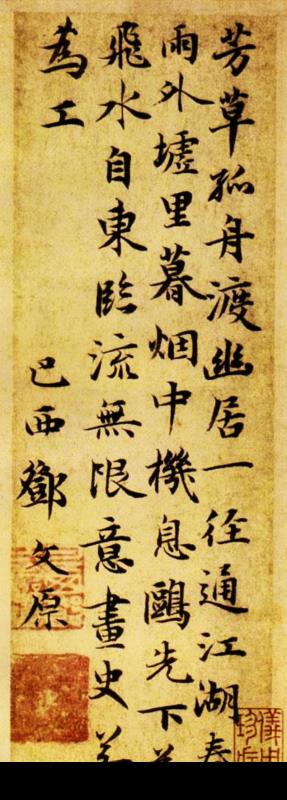 芳草孤舟渡幽居一徑通江湖春
雨外墟里暮烟中機息鷗先下
飛水自東臨流無限意畫史
為工
巴西鄧文原